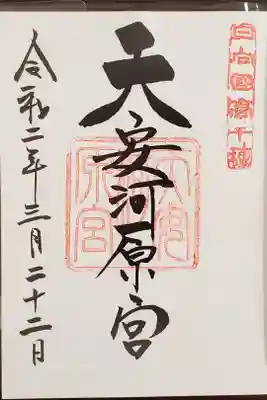 日向國高千穂
天安河原宮
令和二年三月二十二日